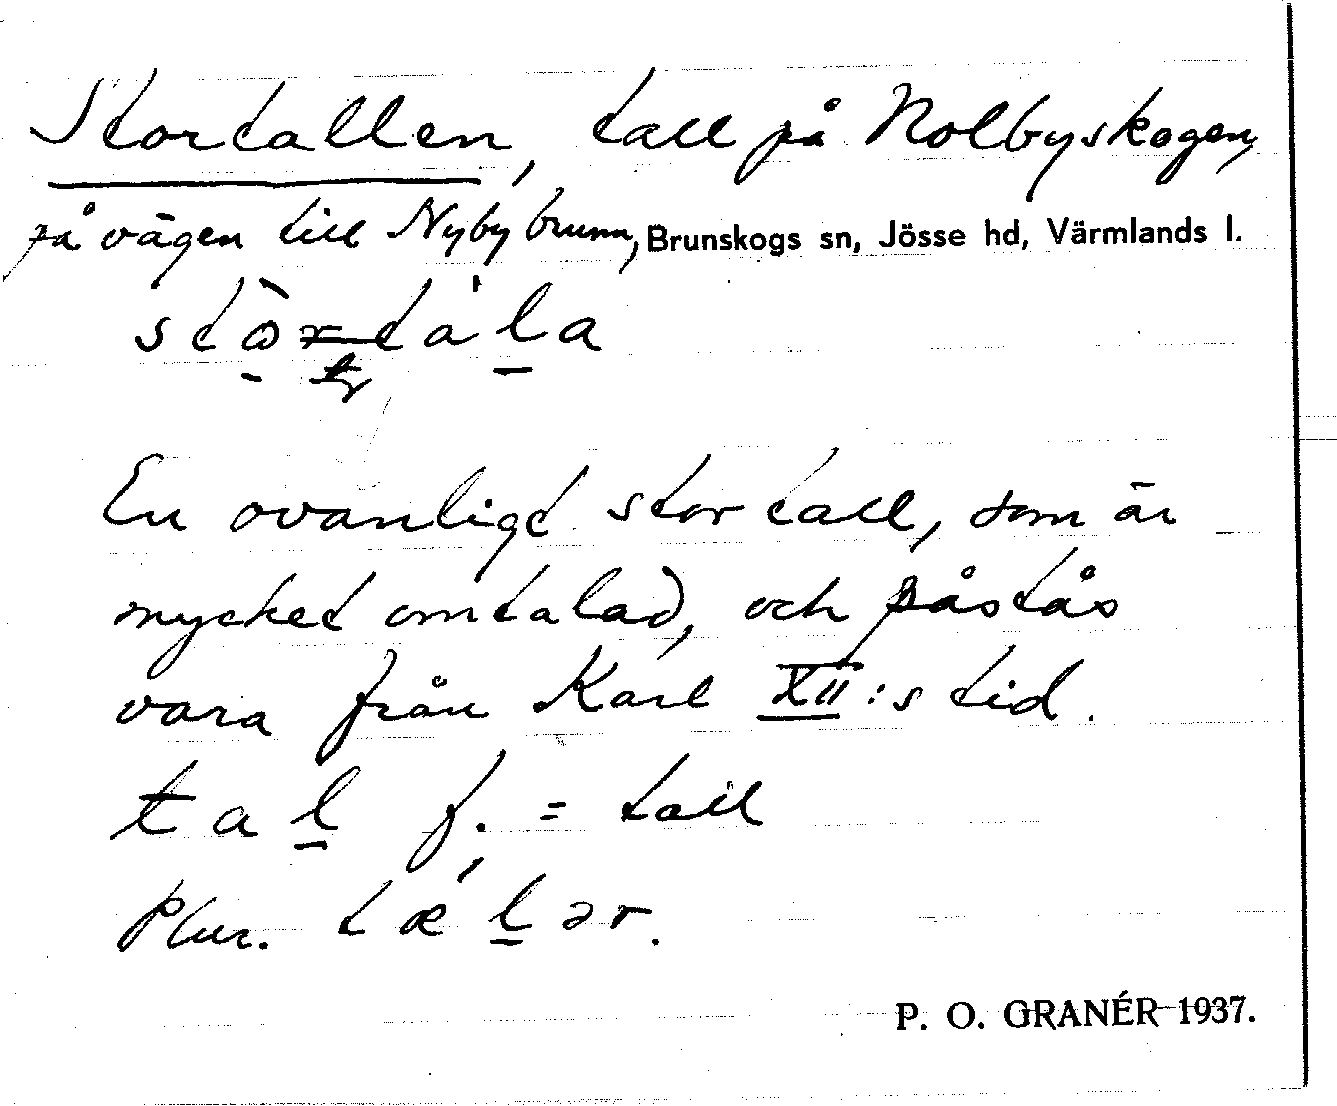 Stortallen, tall på Nolbyskogen,
på vägen till Nyby brunn, Brunskogs sn, Jösse hd, Värmlands l.
En ovanligt stor tall, som är
mycket omtalad, och påstås
vara från Karl XII:s tid.
tal̠ f. = tall
Plur. tæ´l̠ər.
P. O. GRANÉR 1937.